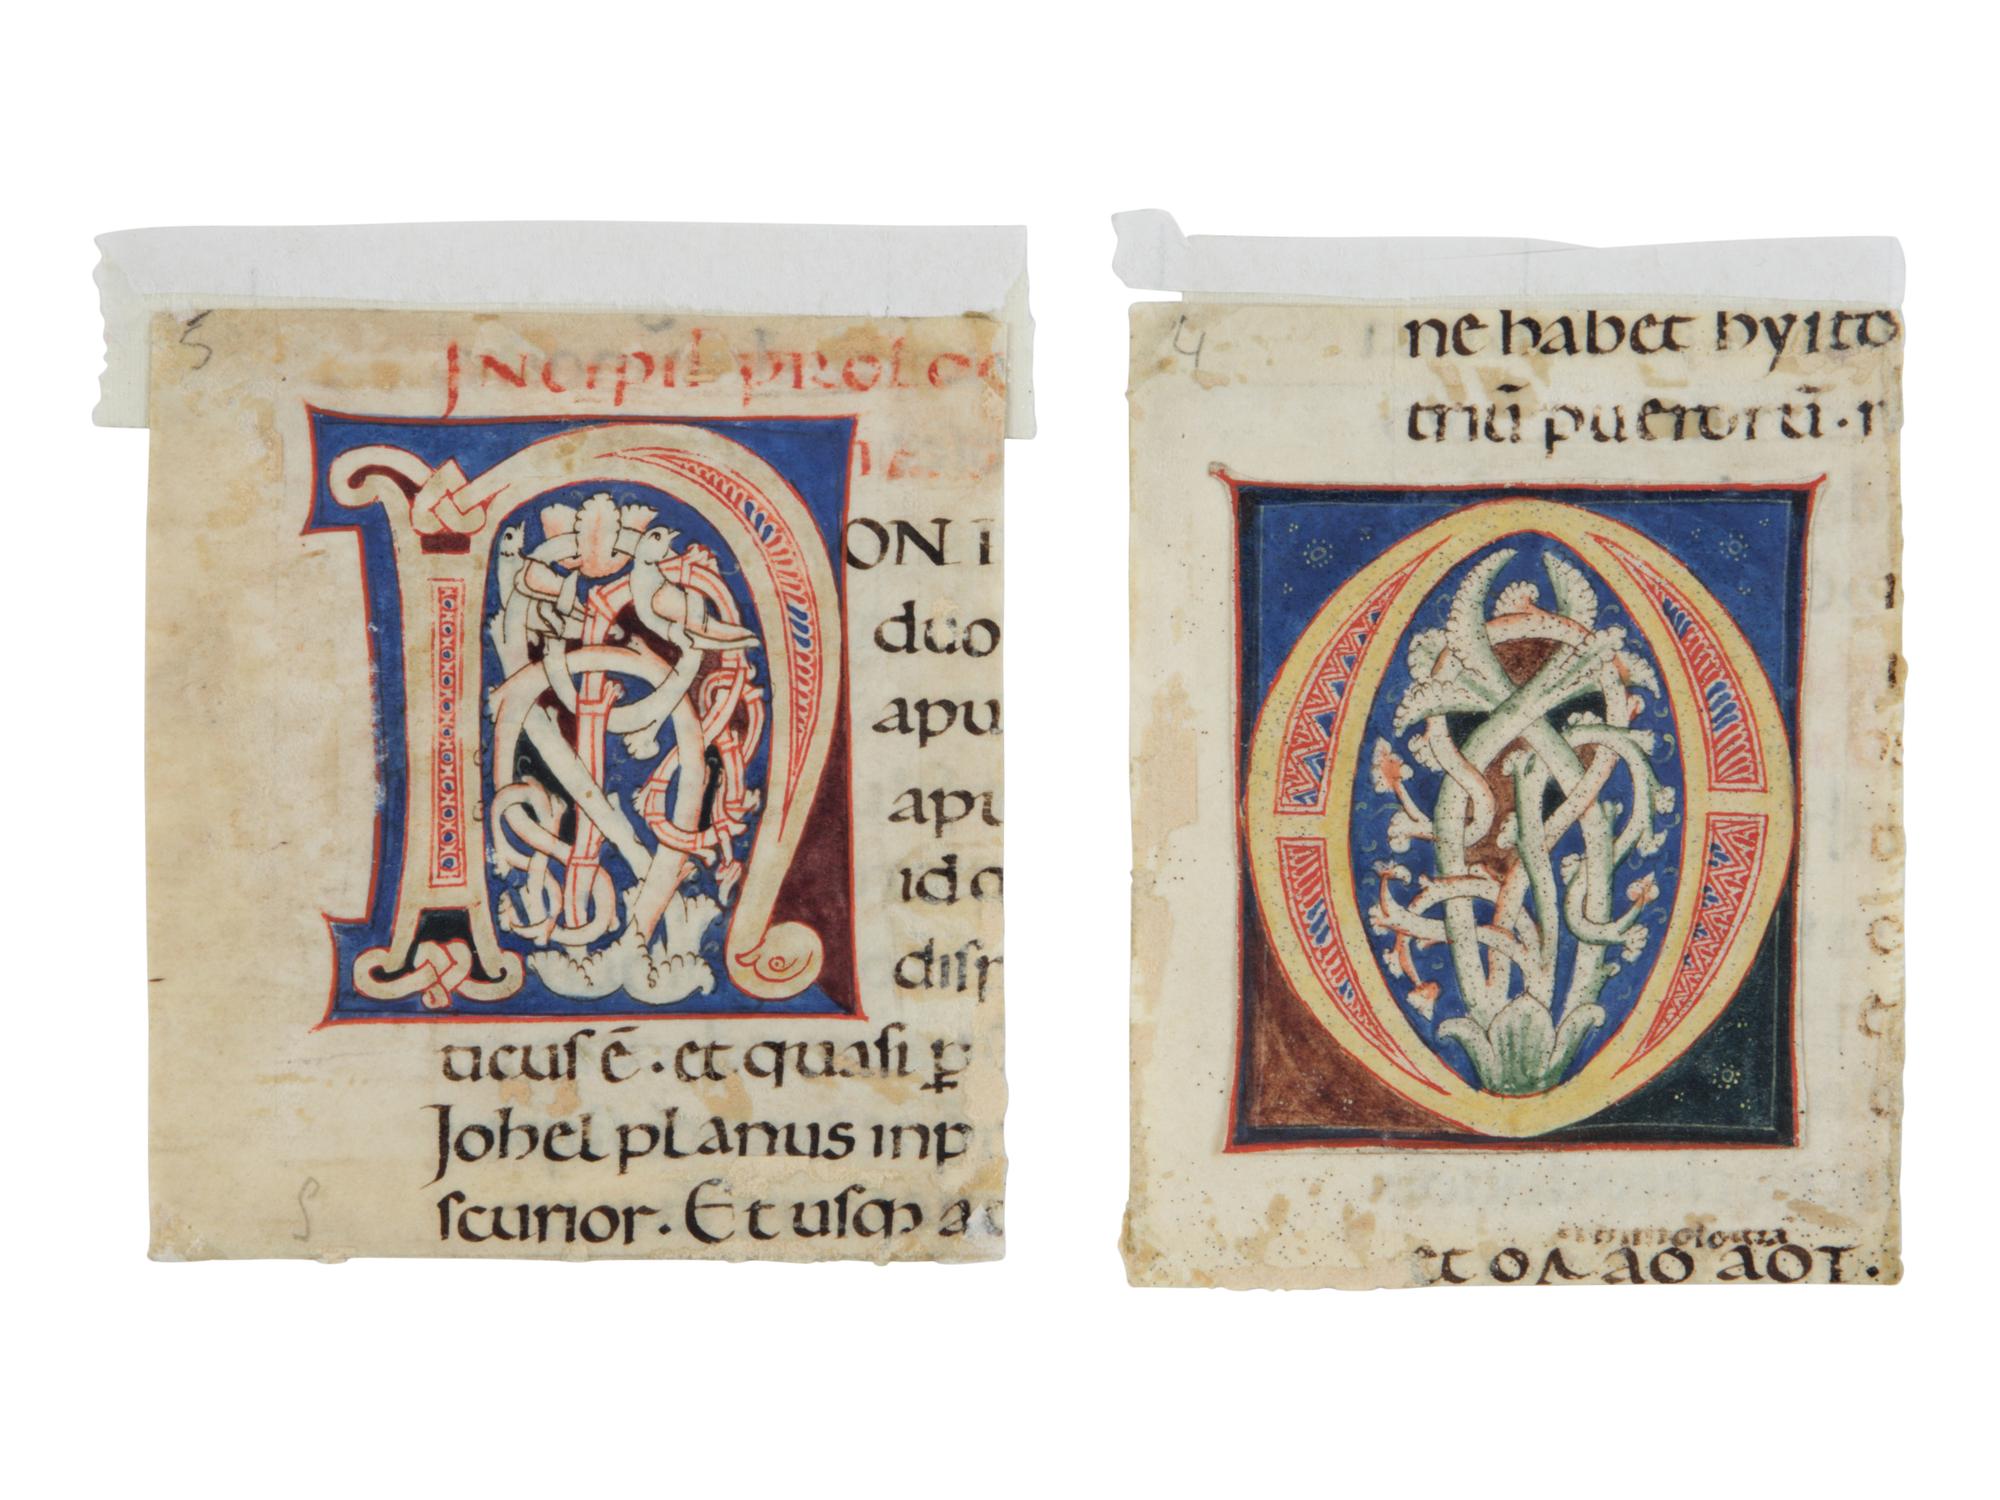 5
Incipit prologu
N
ON I
duo
apu
apu
id q
disp
ticus ē. et quasi ꝑ
Johel planus in p
scurior. Et usq; ad
4
ne habet hysto
triū puerorū. r
O
et ΟΛ ΑΟ ΑΟΤ.